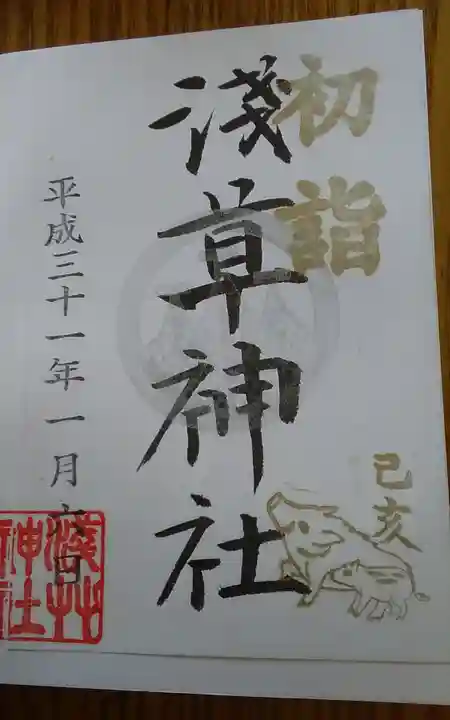 初詣
己亥
淺草神社
平成三十一年一月六日
淺草
神社